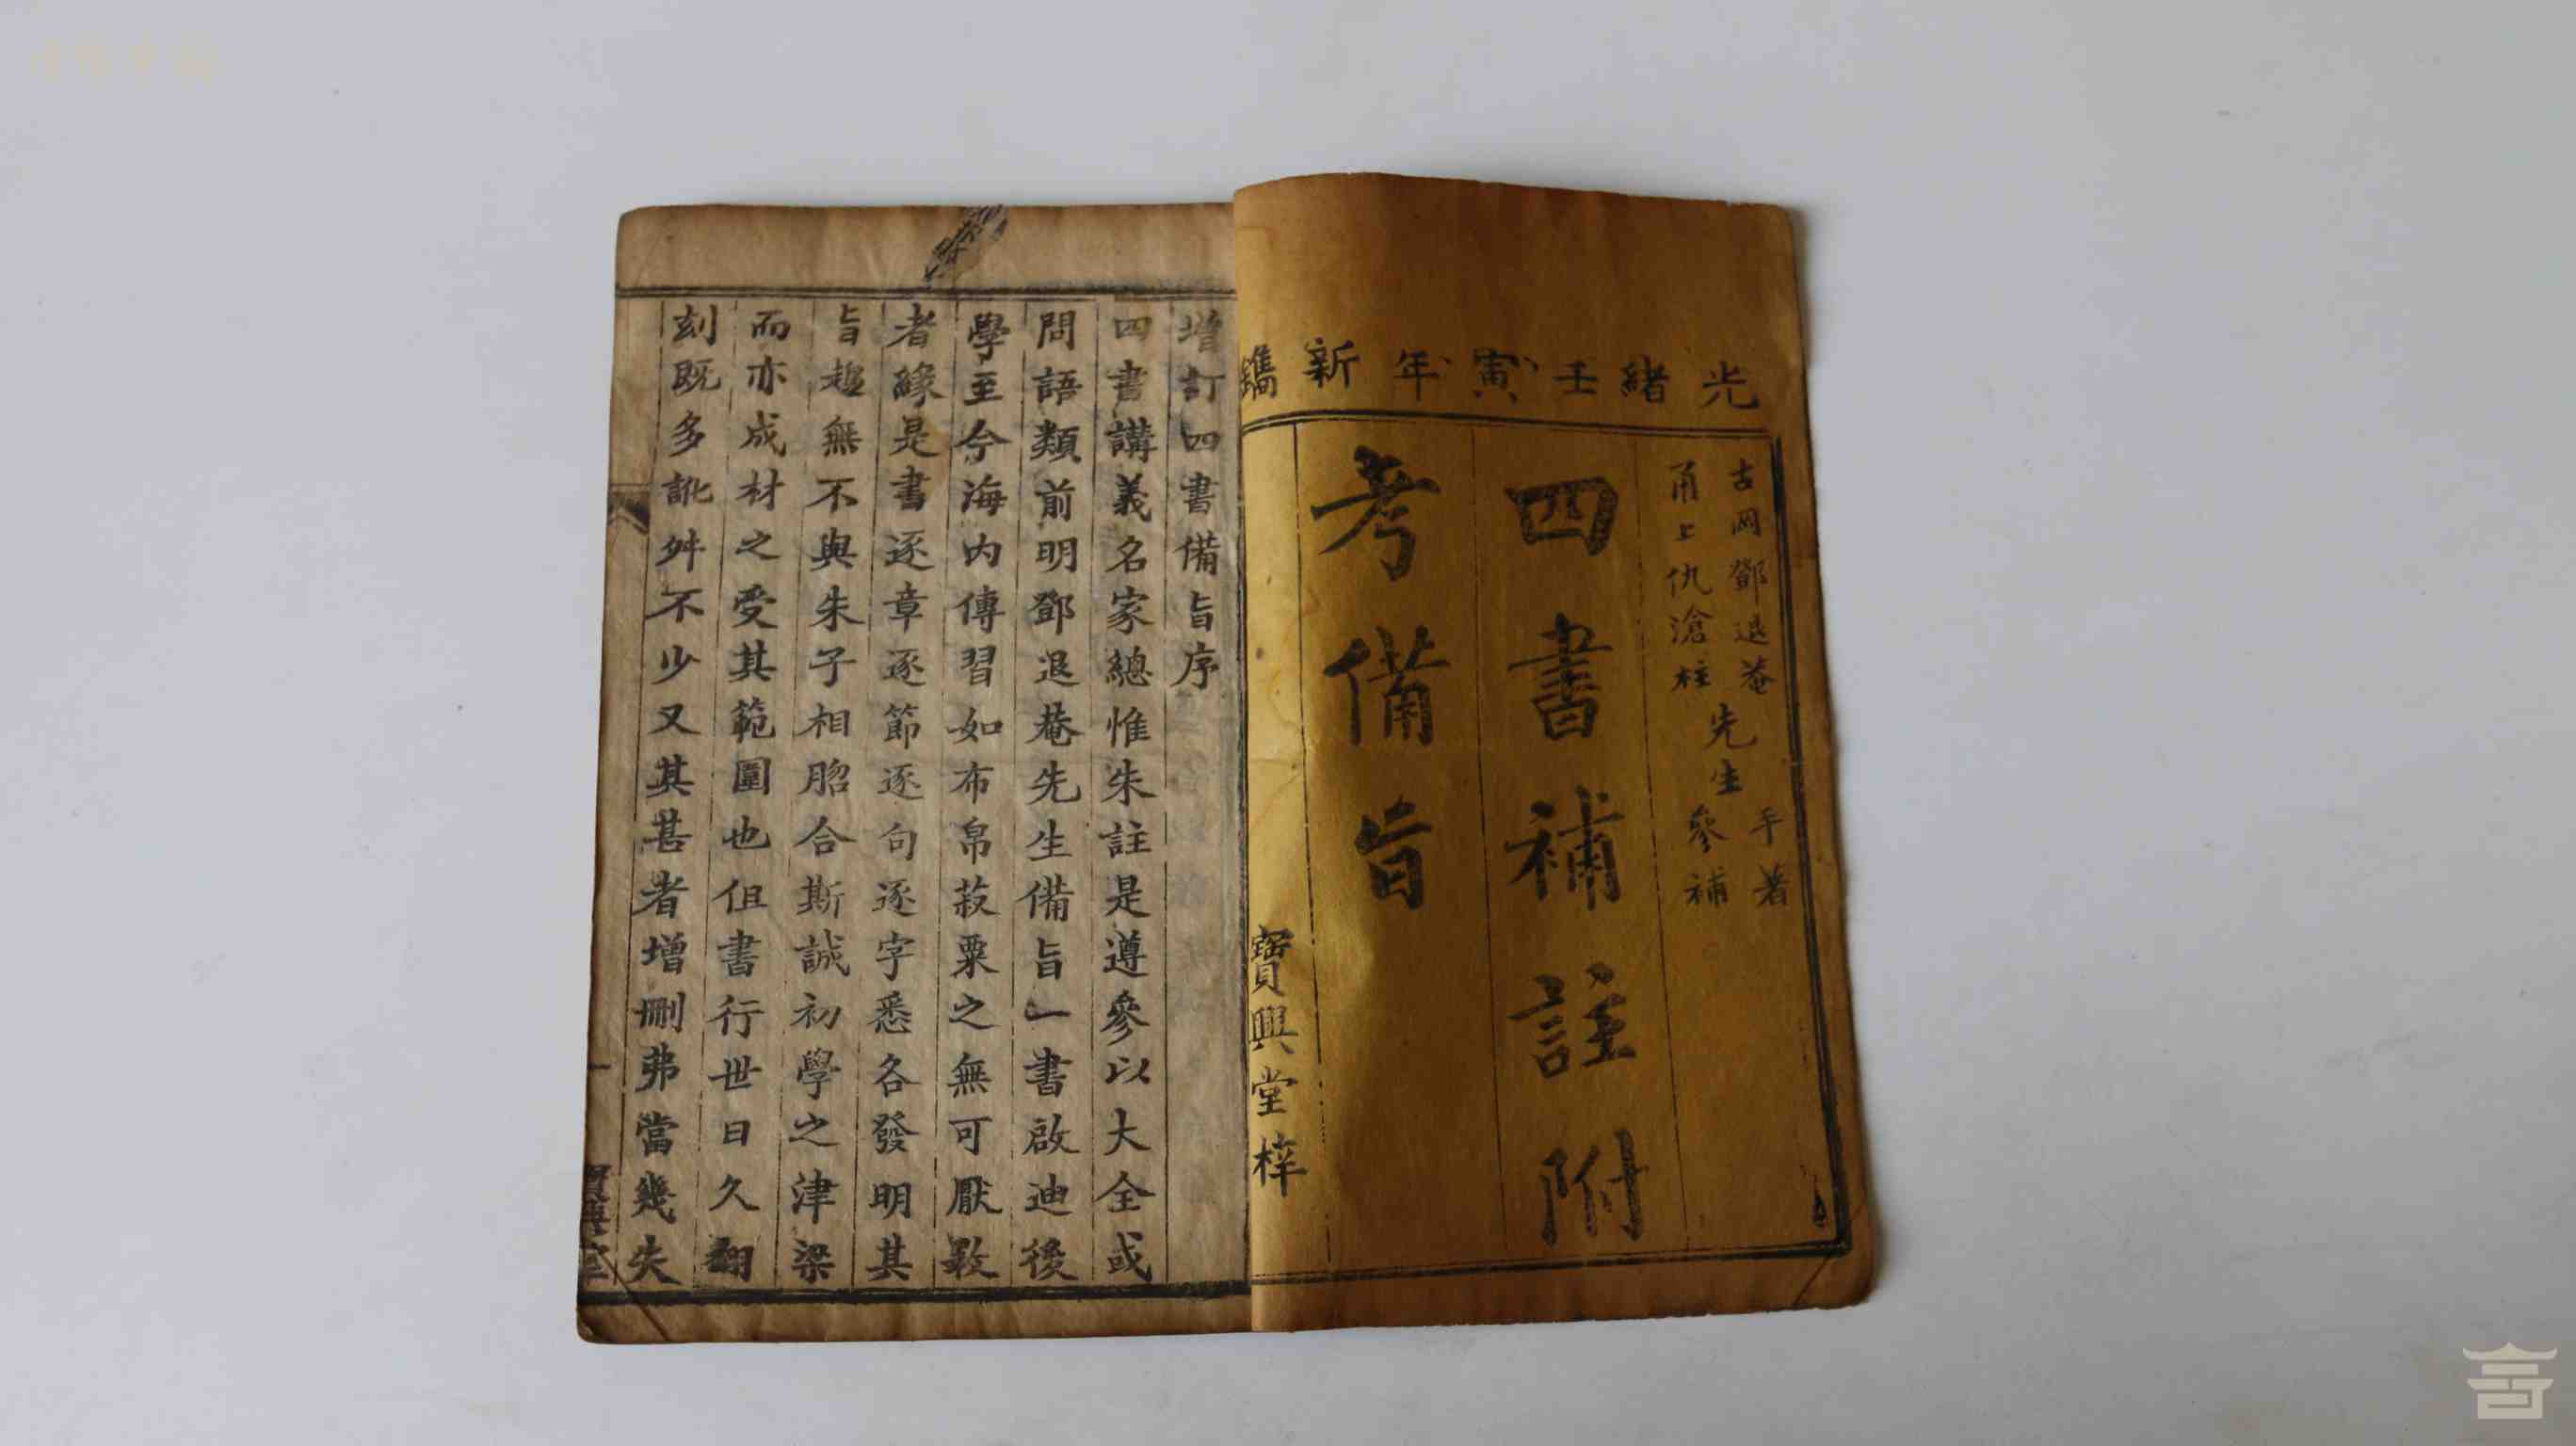 光緒壬寅年新鐫
古岡鄧退菴先生手著
甬上仇滄柱先生參補
四書補註附
考備旨
寶興堂梓
增訂四書備旨序
四書講義名家總惟朱註是遵參以大全或
問語類前明鄧退菴先生備旨一書啟迪後
學至今海內傳習如布帛菽粟之無可厭斁
者緣是書逐章逐節逐句逐字悉各發明其
旨趣無不與朱子相脗合斯誠初學之津梁
而亦成材之受其範圍也但書行世日久翻
刻既多訛舛不少又其甚者增刪弗當幾失
一
寶興堂